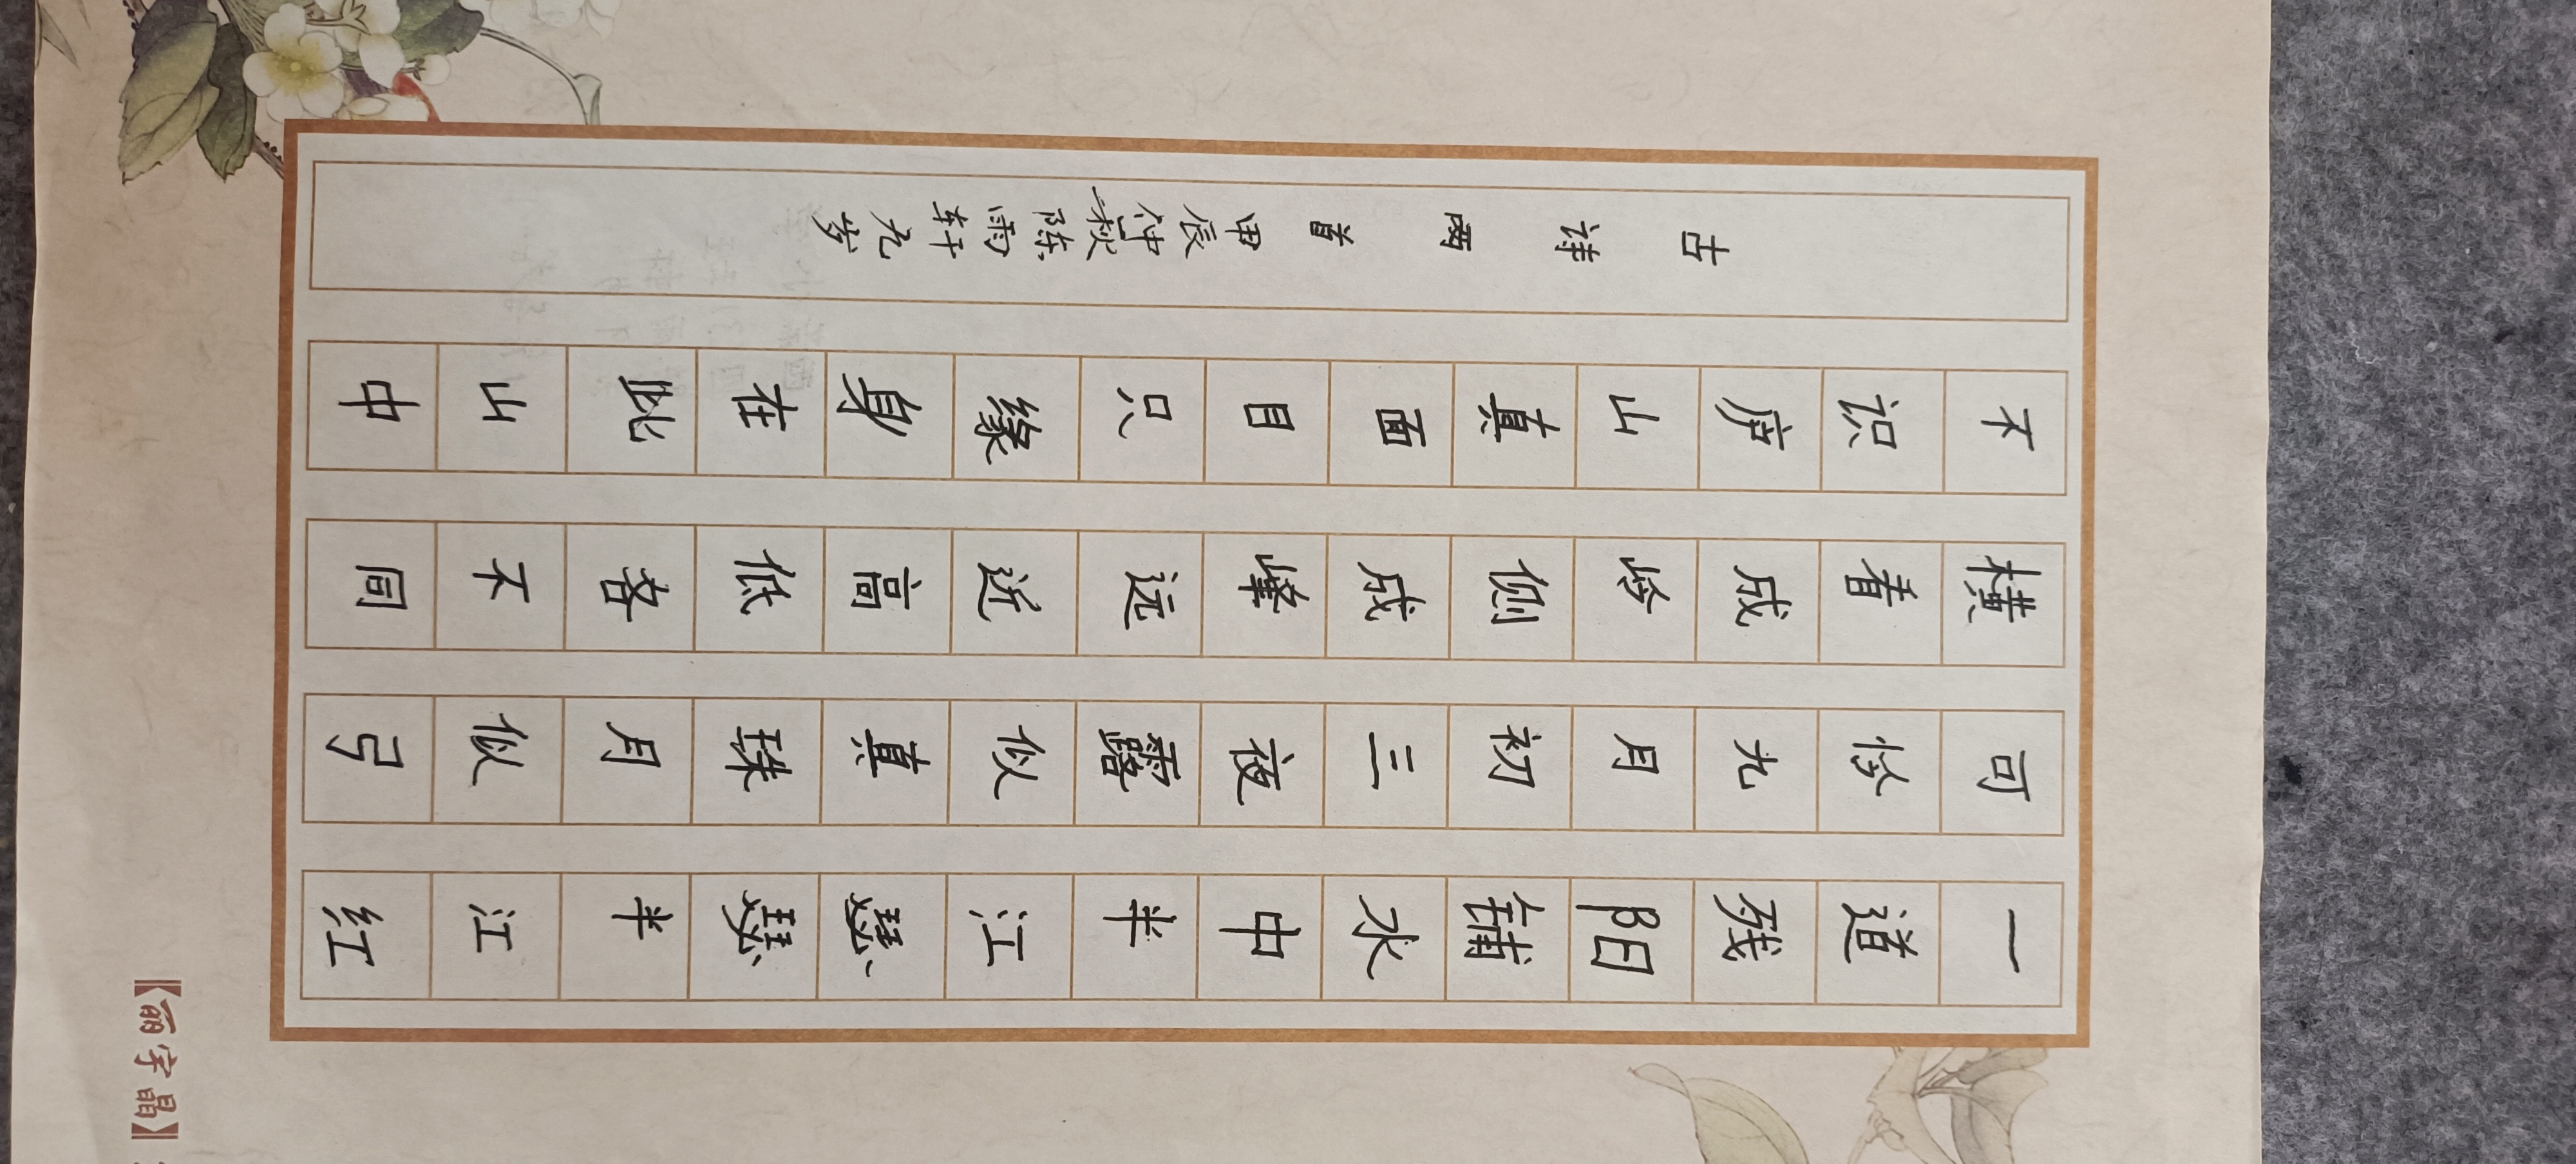 一道残阳铺水中半江瑟瑟半江红
可怜九月初三夜露似真珠月似弓
横看成岭侧成峰远近高低各不同
不识庐山真面目只缘身在此山中
古诗两首甲辰仲秋陈雨轩九岁
【丽字晶】